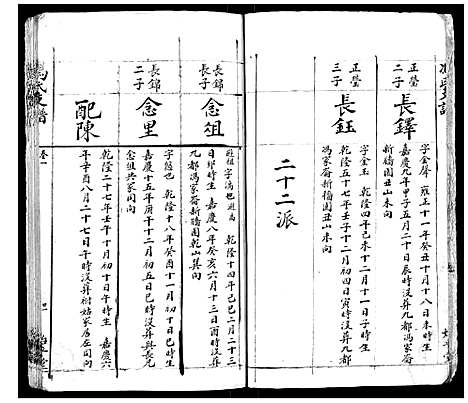 正瑩
二子
長鐸
字金聲 雍正十一年癸丑十月十八日未時生
嘉慶九年甲子五月二十日辰時沒葬九都
馮家畬新牆園丑山未向
正瑩
三子
長鈺
字金玉 乾隆四年己未十二月十一日子時生
乾隆五十七年壬子十二月初四日寅時沒葬九都
馮家畬新牆園丑山未向
二十二派
長錦
長子
念祖
乾隆十四年己巳二月二十三
日卯時生 嘉慶八年癸亥六月十三日酉時沒葬
九都馮家畬新牆園乾山巽向
長錦
二子
念里
乾隆十八年癸酉十一月初十日時生
嘉慶十五年庚午十二月初五日巳時沒葬與長兄
念祖共冢同向
配陳
乾隆二十七年壬午十月初十日午時生 嘉慶六
年辛酉八月二十七日午時沒葬祔姑冢居左同向
卷一